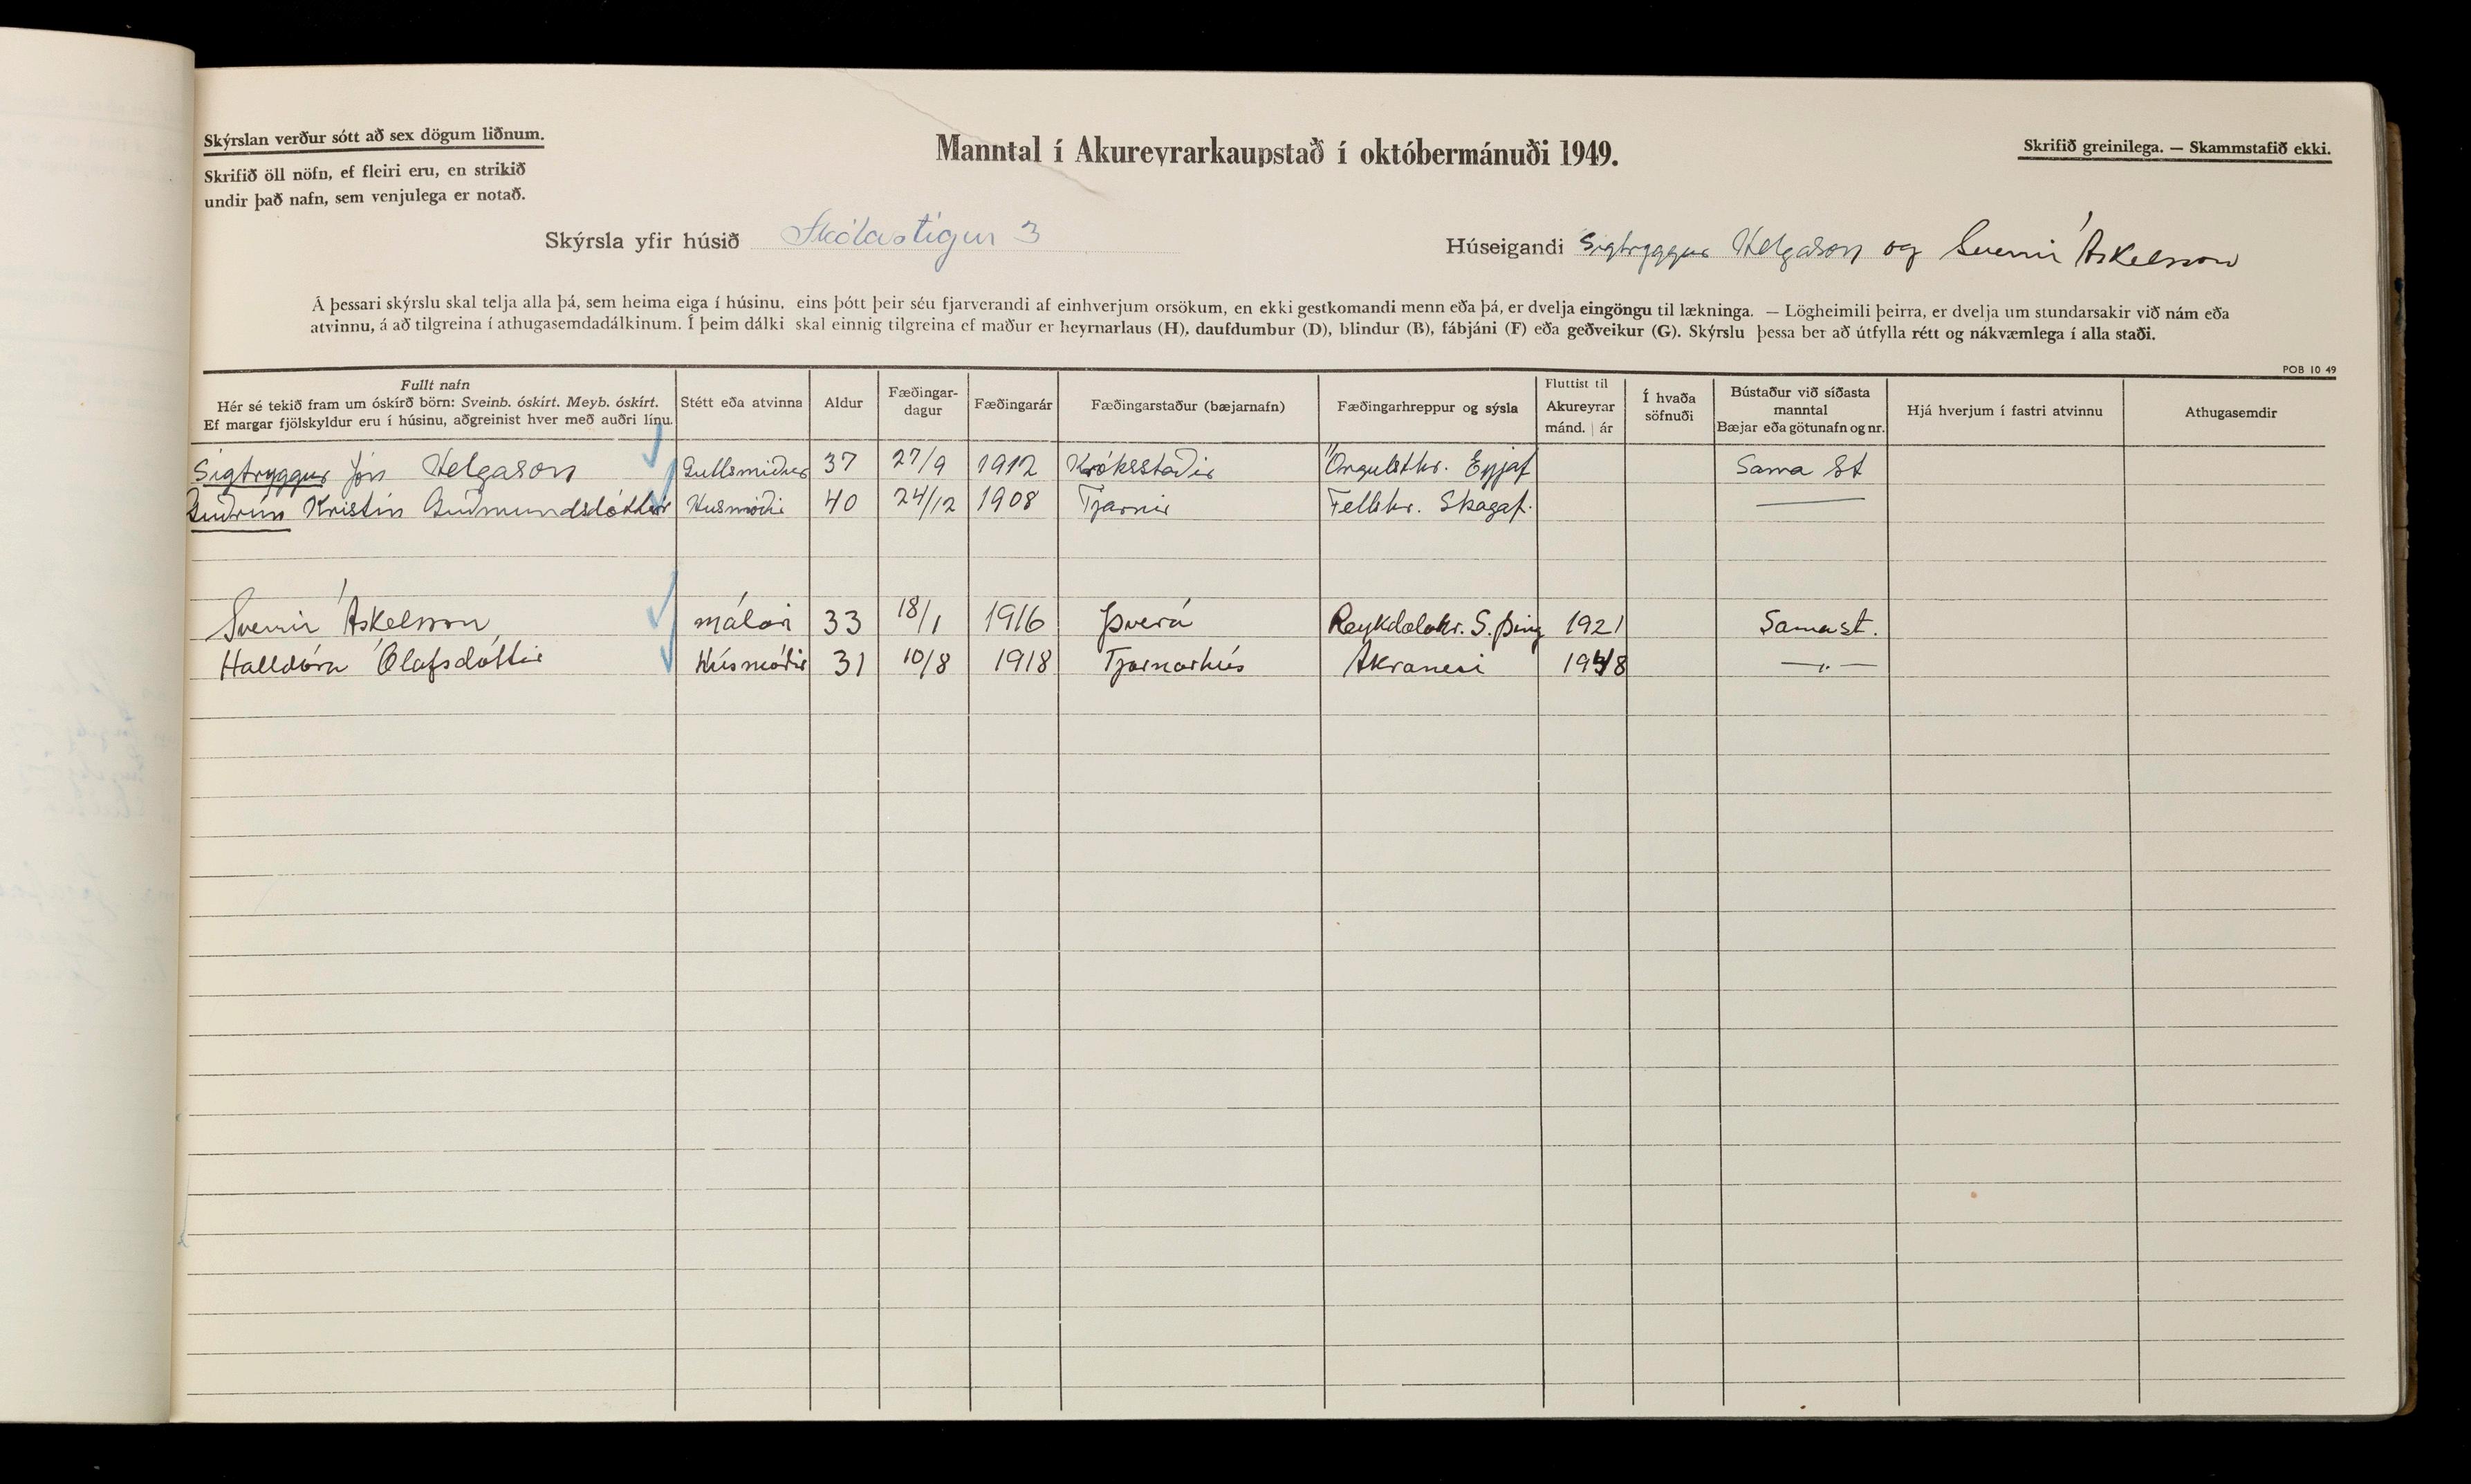 Skýrslan verður sótt að sex dögum liðnum.
Skrifið öll nöfn, ef fleiri eru, en strikið
undir það nafn, sem venjulega er notað.
Manntal í Akureyrarkaupstað í októbermánuði 1949.
Skrifið greinilega. — Skammstafið ekki.
Skýrsla yfir húsið Skólastígur 3
Húseigandi Sigtryggur Helgason og Sverrir Áskelsson
Á þessari skýrslu skal telja alla þá, sem heima eiga í húsinu, eins þótt þeir séu fjarverandi af einhverjum orsökum, en ekki gestkomandi menn eða þá, er dvelja eingöngu til lækninga. — Lögheimili þeirra, er dvelja um stundarsakir við nám eða
atvinnu, á að tilgreina í athugasemdadálkinum. Í þeim dálki skal einnig tilgreina ef maður er heyrnarlaus (H), daufdumbur (D), blindur (B), fábjáni (F) eða geðveikur (G). Skýrslu þessa ber að útfylla rétt og nákvæmlega í alla staði.
POB 10 49
Fullt nafn
Hér sé tekið fram um óskírð börn: Sveinb. óskírt. Meyb. óskírt.
Ef margar fjölskyldur eru í húsinu, aðgreinist hver með auðri línu.
Stétt eða atvinna
Aldur
Fæðingar-
dagur
Fæðingarár
Fæðingarstaður (bæjarnafn)
Fæðingarhreppur og sýsla
Fluttist til
Akureyrar
mánd. | ár
Í hvaða
söfnuði
Bústaður við síðasta
manntal
Bæjar eða götunafn og nr.
Hjá hverjum í fastri atvinnu
Athugasemdir
Sigtryggur Jón Helgason Gullsmiður 37 27/9 1912 Króksstaðir Öngulsthr. Eyjaf Sama St
Guðrún Kristín Guðmundsdóttir Húsmóðir 40 24/12 1908 Tjarnir Fellshr. Skagaf. —
Sverrir Áskelsson málari 33 18/1 1916 Þverá Reykdælahr. S. Þing 1921 Sama st.
Halldóra Ólafsdóttir Húsmóðir 31 10/8 1918 Tjarnarhús Akranesi 1948 —"—